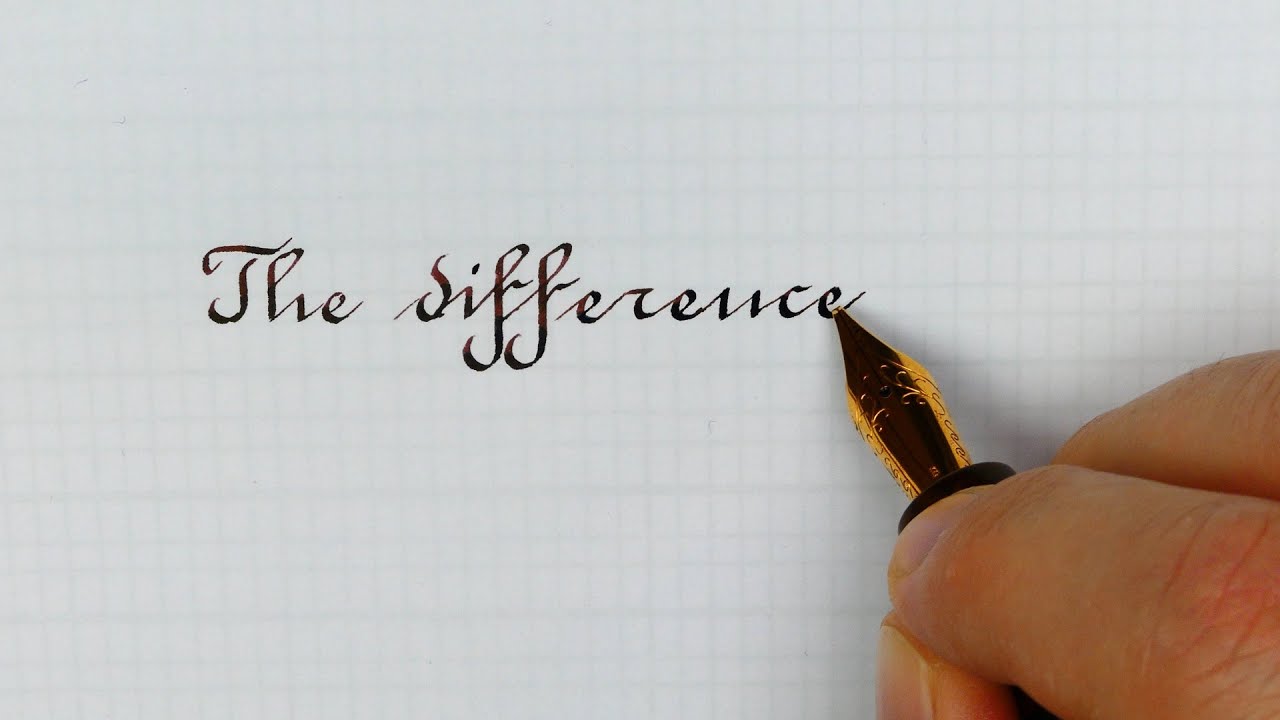 The difference